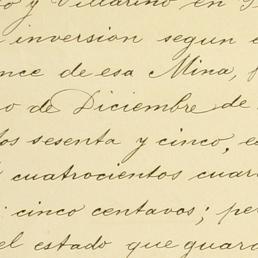 y Villarino en
inversión segun
nce de esa Mina,
o de Diciembre de
tos sesenta y cinco,
cuatrocientos cuar
cinco centavos; pe
el estado que guard